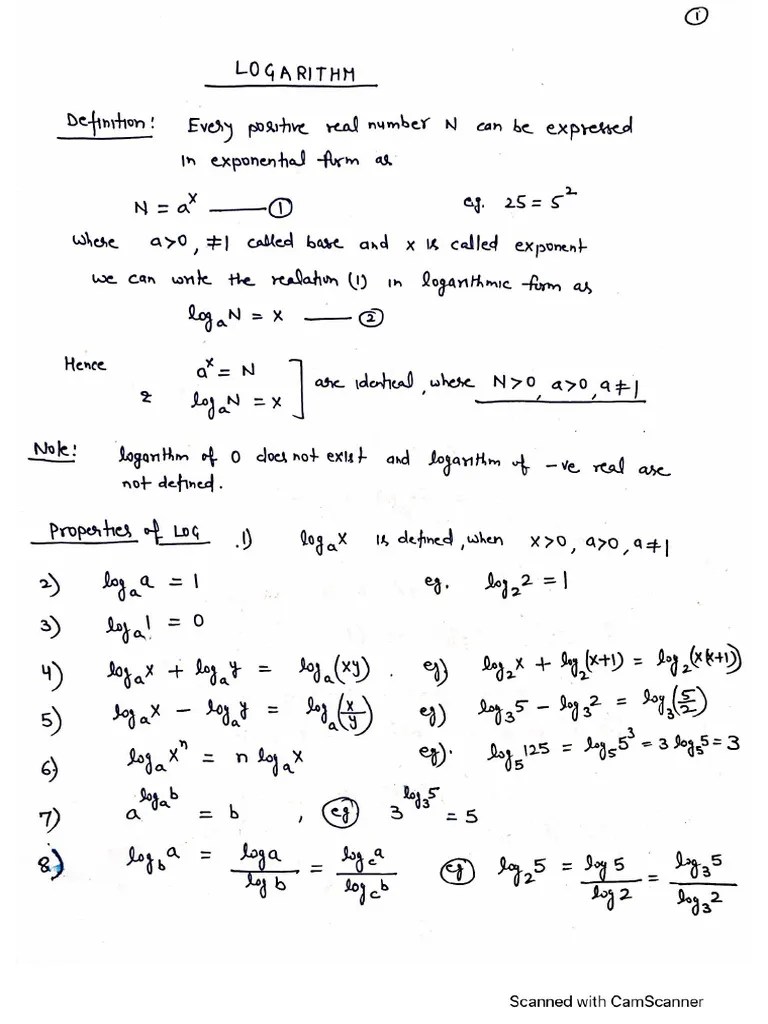 ①
LOGARITHM
Definition: Every positive real number N can be expressed
in exponential form as
N = aˣ —— ① eg. 25 = 5²
where a>0, ≠1 called base and x is called exponent
we can write the realation (1) in logarithmic form as
logₐN = x —— ②
Hence aˣ = N
& logₐN = x ] are identical, where N>0, a>0, a≠1
Note: logarithm of 0 does not exist and logarithm of -ve real are
not defined.
Properties of LOG .1) logₐx is defined, when x>0, a>0, a≠1
2) logₐa = 1 eg. log₂2 = 1
3) logₐ1 = 0
4) logₐx + logₐy = logₐ(xy). eg) log₂x + log₂(x+1) = log₂(x(x+1))
5) logₐx - logₐy = logₐ(x/y) eg) log₃5 - log₃2 = log₃(5/2)
6) logₐxⁿ = n logₐx eg). log₅125 = log₅5³ = 3 log₅5 = 3
7) a^(logₐb) = b , eg 3^(log₃5) = 5
8) log_b a = log a / log b = log_c a / log_c b eg log₂5 = log 5 / log 2 = log₃5 / log₃2
Scanned with CamScanner